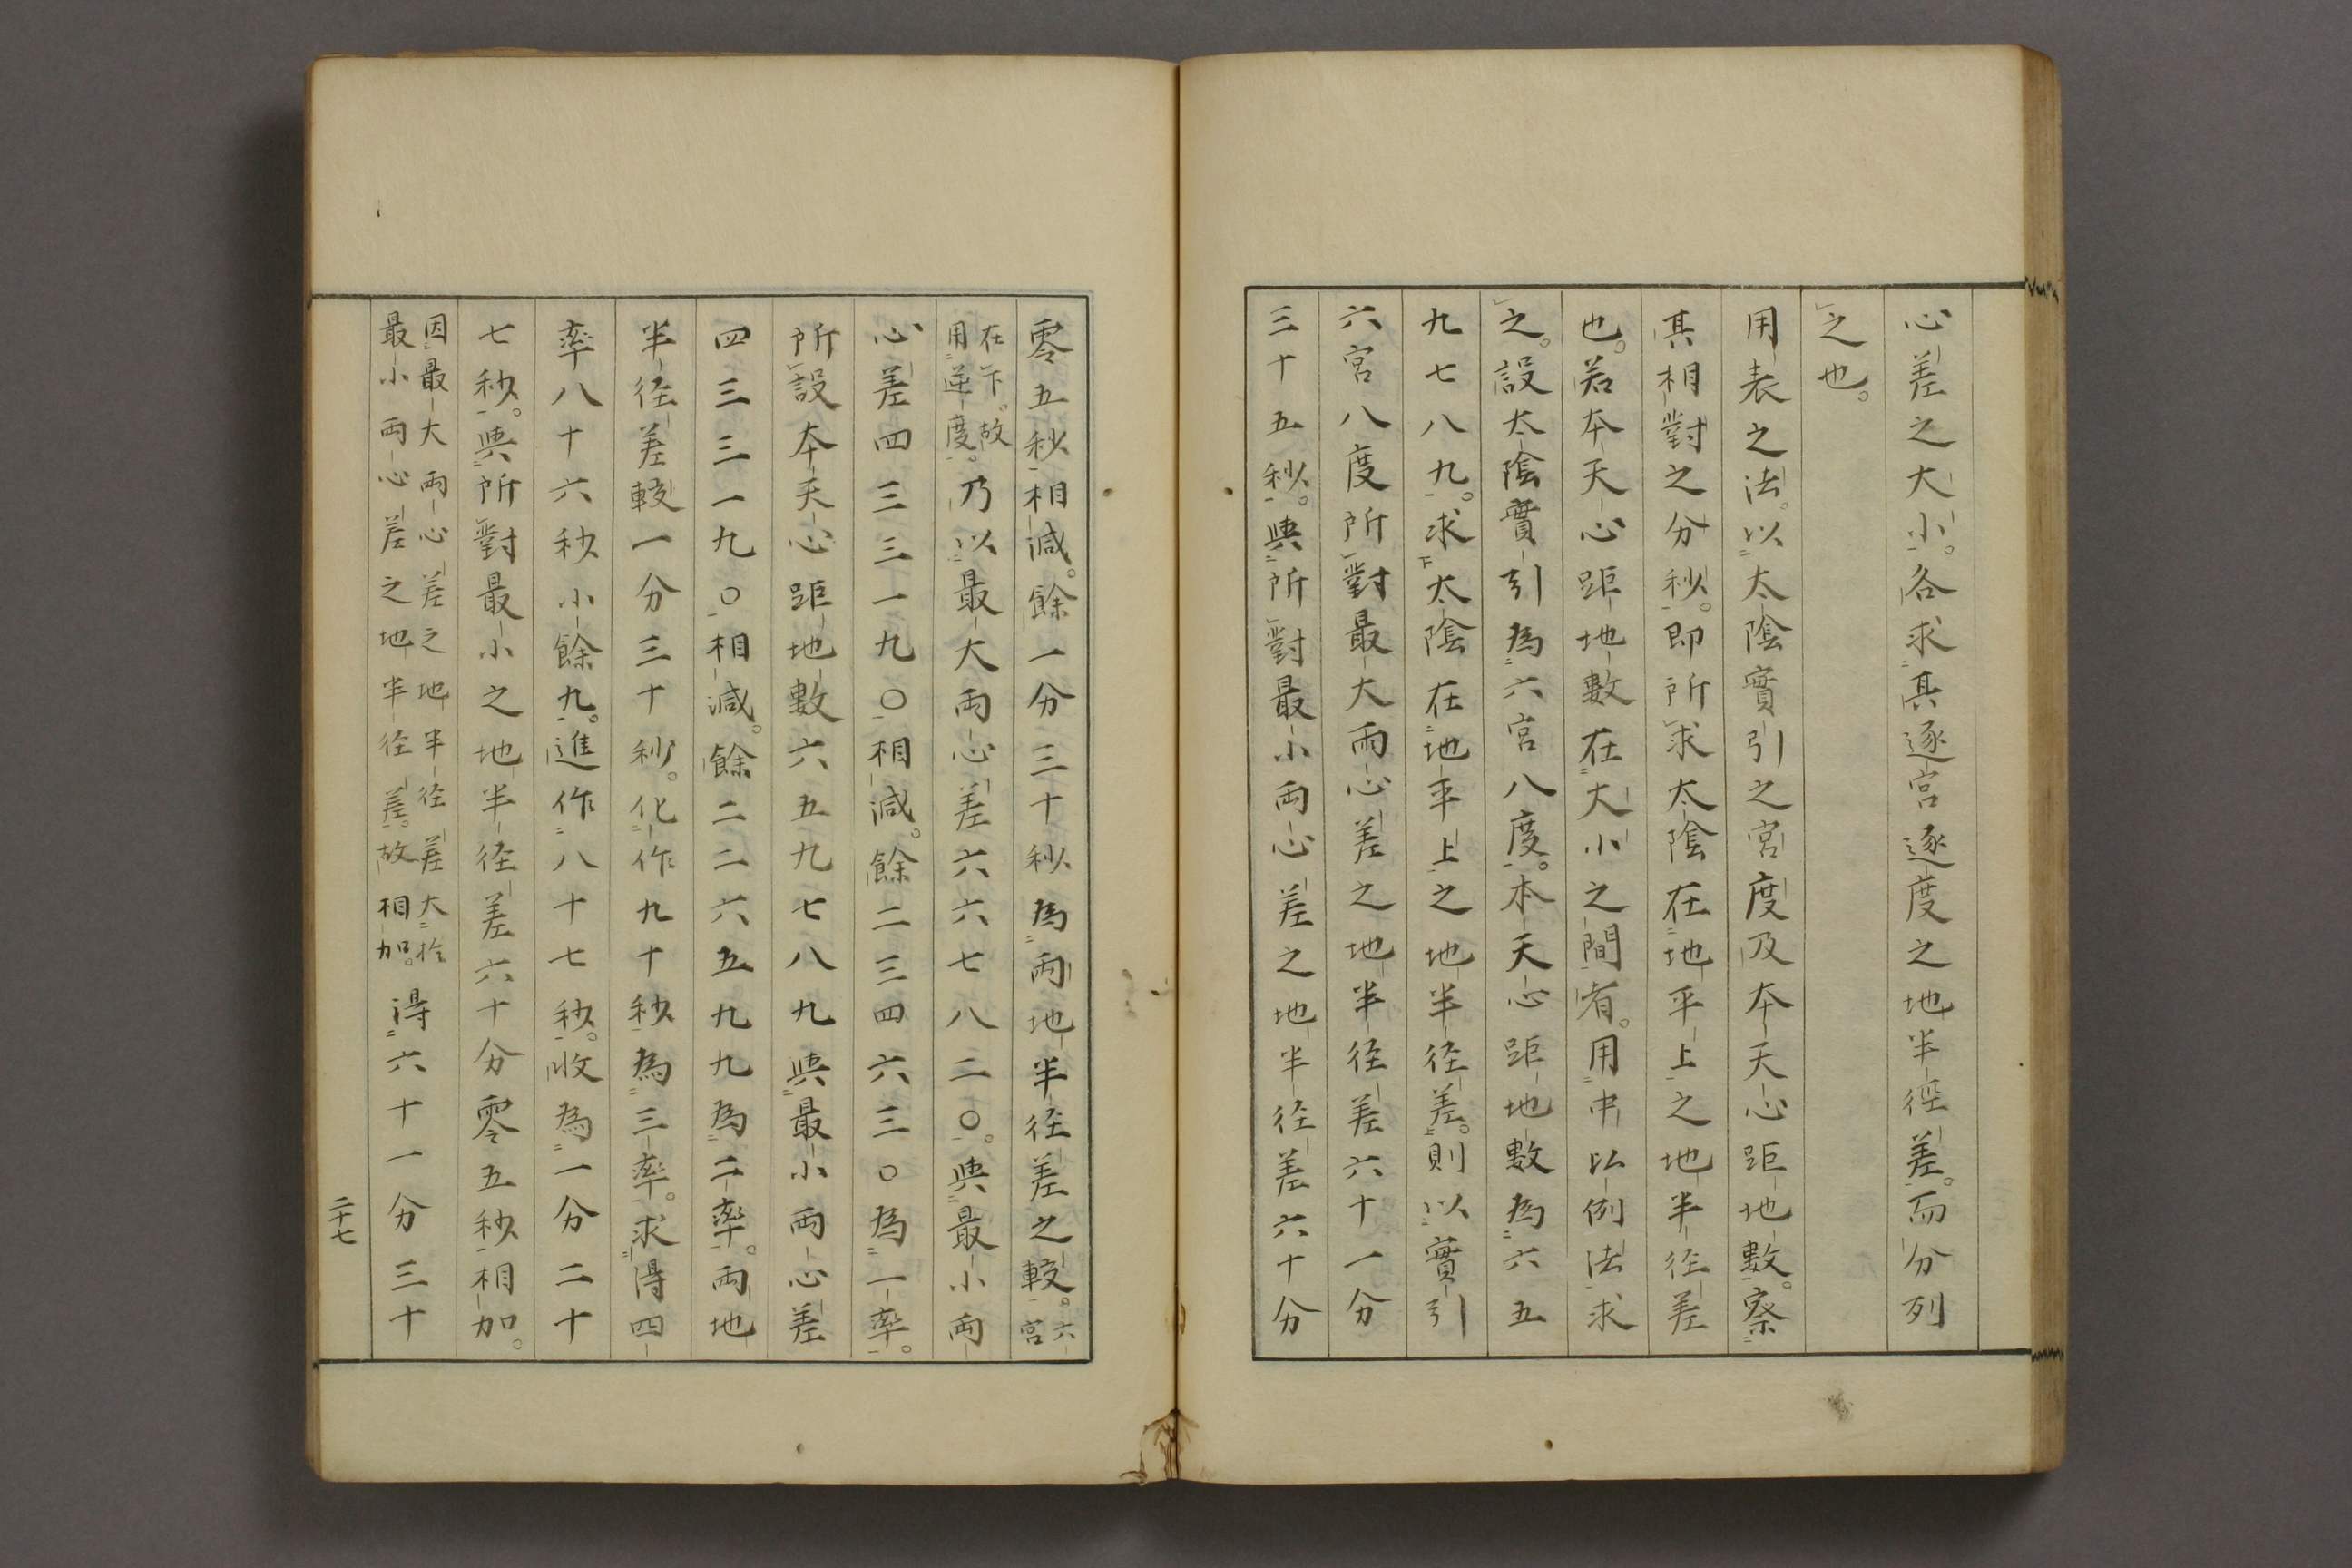 心差之大小。各求其逐宮逐度之地半徑差。而分列
之也。
用表之法。以太陰實引之宮度及本天心距地數。察
其相對之分秒。即所求太陰在地平上之地半径差
也。若本天心距地數在大小之間者。用中比例法求
之。設太陰實引為六宮八度。本天心距地數為六五
九七八九。求太陰在地平上之地半径差。則以實引
六宮八度所對最大兩心差之地半径差六十一分
三十五秒。與所對最小兩心差之地半径差六十分
零五秒相減。餘一分三十秒為兩地半径差之較。六宮
在下。故用逆度。乃以最大兩心差六六七八二〇。與最小兩
心差四三三一九〇相減。餘二三四六三〇為一率。
所設本天心距地數六五九七八九與最小兩心差
四三三一九〇相減。餘二二六五九九為二率。兩地
半径差較一分三十秒。化作九十秒為三率。求得四
率八十六秒小餘九。進作八十七秒。收為一分二十
七秒。與所對最小之地半径差六十分零五秒相加。
因最大兩心差之地半径差大於最小兩心差之地半径差。故相加。得六十一分三十
二十七